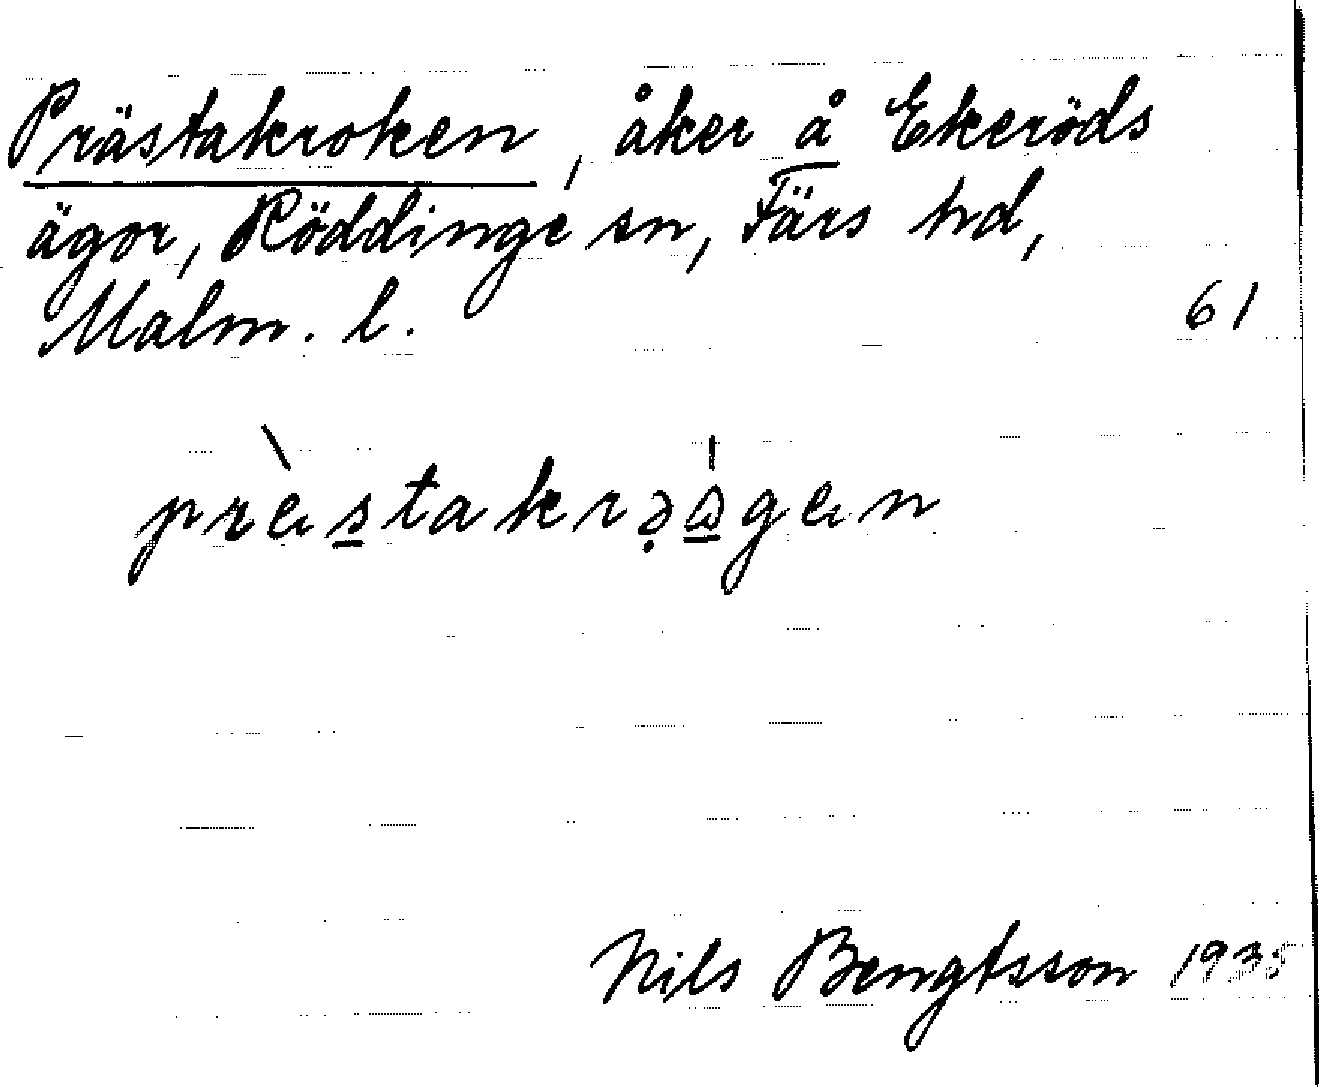 Prästakroken, åker å Ekeröds
ägor, Röddinge sn, Färs hd,
Malm. l.
61
Nils Bengtsson 1935